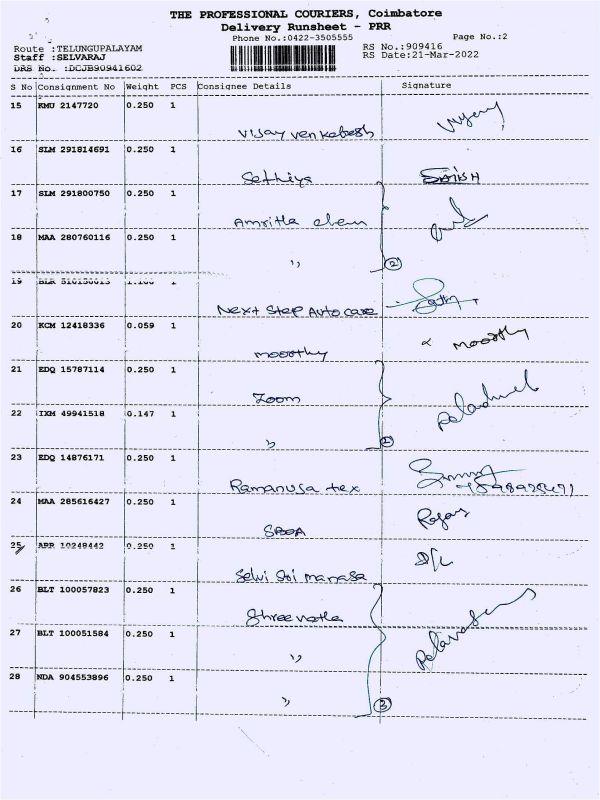 THE PROFESSIONAL COURIERS, Coimbatore
Delivery Runsheet - PRR
Phone No.:0422-3505555 Page No.:2
Route :TELUNGUPALAYAM RS No.:909416
Staff :SELVARAJ RS Date:21-Mar-2022
DRS No. :DCJB90941602
S No Consignment No Weight PCS Consignee Details Signature
15 KMU 2147720 0.250 1
Vijay venkatesh
16 SLM 291814691 0.250 1
Sethiya SATISH
17 SLM 291800750 0.250 1
Amritha chem
18 MAA 280760116 0.250 1
,, 2
19 BLR 510150013 1.100 1
Next Step Auto care
20 KCM 12418336 0.059 1
moorthy moorthy
21 EDQ 15787114 0.250 1
Zoom
22 IXM 49941518 0.147 1
,, 1
23 EDQ 14876171 0.250 1
Ramanusa tex
24 MAA 285616427 0.250 1
SBOA
25 ARR 10248442 0.250 1
Selvi Sri manasa
26 BLT 100057823 0.250 1
Shree
27 BLT 100051584 0.250 1
,,
28 NDA 904553896 0.250 1
,, 3